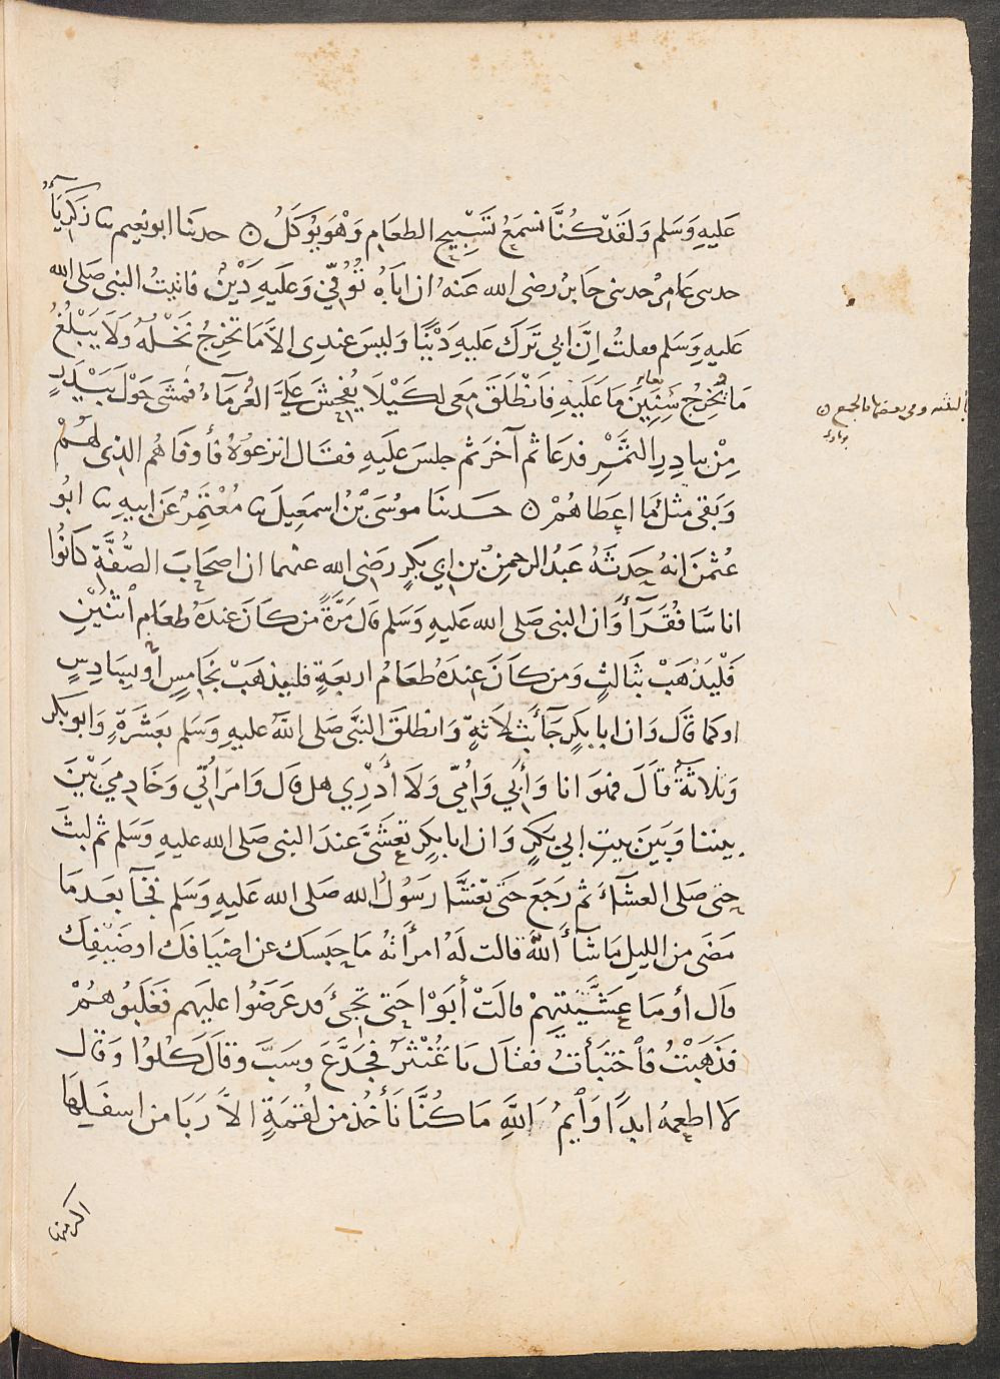 عَلَيهِ وَسَلم وَلَقَدْ كُنَّا نَسْمَعُ تَسْبِيحَ الطعَامِ وَهْوَ يُوكَلُ ۞ حدثنا ابو نعيم ثنا زَكَرِيَّاءُ
حدثنى عَامِرُ حدثنى جَابرُ رضى الله عَنهُ ان اَبَاهُ تُوُفِّيَ وَعَلَيهِ دَيْنٌ فاتيتُ النبى صَلى الله
عَليهِ وَسَلم فقلتُ اِنَّ ابي تَرَكَ عَليهِ دَيْنًا وَليسَ عندِى الاَّ مَا تخرِجُ نَخْلُهُ وَلَا يَبْلُغُ
مَا تُخْرِجُ سِنِينَ مَا عَلَيهِ فَانْطَلِقَ مَعِى لكَيْلَا يُفْحِشَ عَلَيَّ الغُرمَآءُ فَمشَى حَوْلَ بَيْدَرٍ
بالتثنيه وفى بعضها بالجمع ۞
مِنْ بيَادِرِ التَّمْرِ فدعَا ثم آخَرَ ثم جلسَ عَلَيهِ فقال انزعُوهُ فأوفَاهُم الذى لَهُمْ
وَبَقى مثلُ مَا اعطَاهُمْ ۞ حَدثنَا مُوسَى بْنُ اسمعِيلَ ثنا مُعْتَمِرُ عَن ابيهِ ثنا ابُو
عُثْمٰنَ انهُ حَدثَهُ عَبدُ الرحمٰنِ بن ابي بَكرٍ رضَى الله عنهما ان اصحَابَ الصُّفَّةِ كَانُوا
اناسًا فُقَرَآءَ وَان النبى صَلى الله عَليهِ وَسَلم قال مَرَّةً من كَانَ عندَهُ طعَامُ اثنَيْنِ
فَلْيَذْهَبْ بثَالثٍ وَمن كَانَ عِندَهُ طعَامُ اربعَةٍ فليذهَبْ بخَامِسٍ أو بِسَادِسٍ
او كما قَال وَان ابا بكرٍ جَآءَ بثَلاَثةٍ وَانطلقَ النبَّى صَلى اللّٰه عليهِ وَسَلم بعَشَرَةٍ وَابو بكر
وَثلاثَةً قاَلَ فهْوَ انا وَأَبي وَاُمِّى وَلَا أَدْرِي هل قال وَامرَأتي وَخَادِمِي بَيْنَ
بيتنا وَبَين بيتِ ابي بَكرٍ وَان ابا بكرٍ تعَشَى عندَ النبى صَلى الله عليهِ وَسَلم ثم لبثَ
حتى صَلى العشَآءَ ثم رَجَعَ حَتى تعَشَّا رَسُولُ الله صَلى الله عَليهِ وَسَلم فجَآ بعدَ مَا
مَضَى من الليلِ مَا شآءَ اللّٰهُ قالت لَهُ امرأتهُ مَا حَبسَك عن اضيَافكَ او ضَيْفِكَ
قال أوَ مَا عَشَّيْتِهِمْ قالَتْ أَبَوْا حَتى تجئَ قد عَرَضُوا عليهم فَغَلبُوهُمْ
فَذَهَبْتُ فاْختبَأتُ فقال يَا غُنْثَرُ فجَدَّعَ وسَبَّ وقَالَ كلُوا وَقَال
لَا اطعِمُهُ ابدًا وَاْيمُ اللَّهِ مَا كُنَّا نَأخُذ من لقْمَةٍ الاَّ رَبَا من اسفَلِهَا
اكثر منها